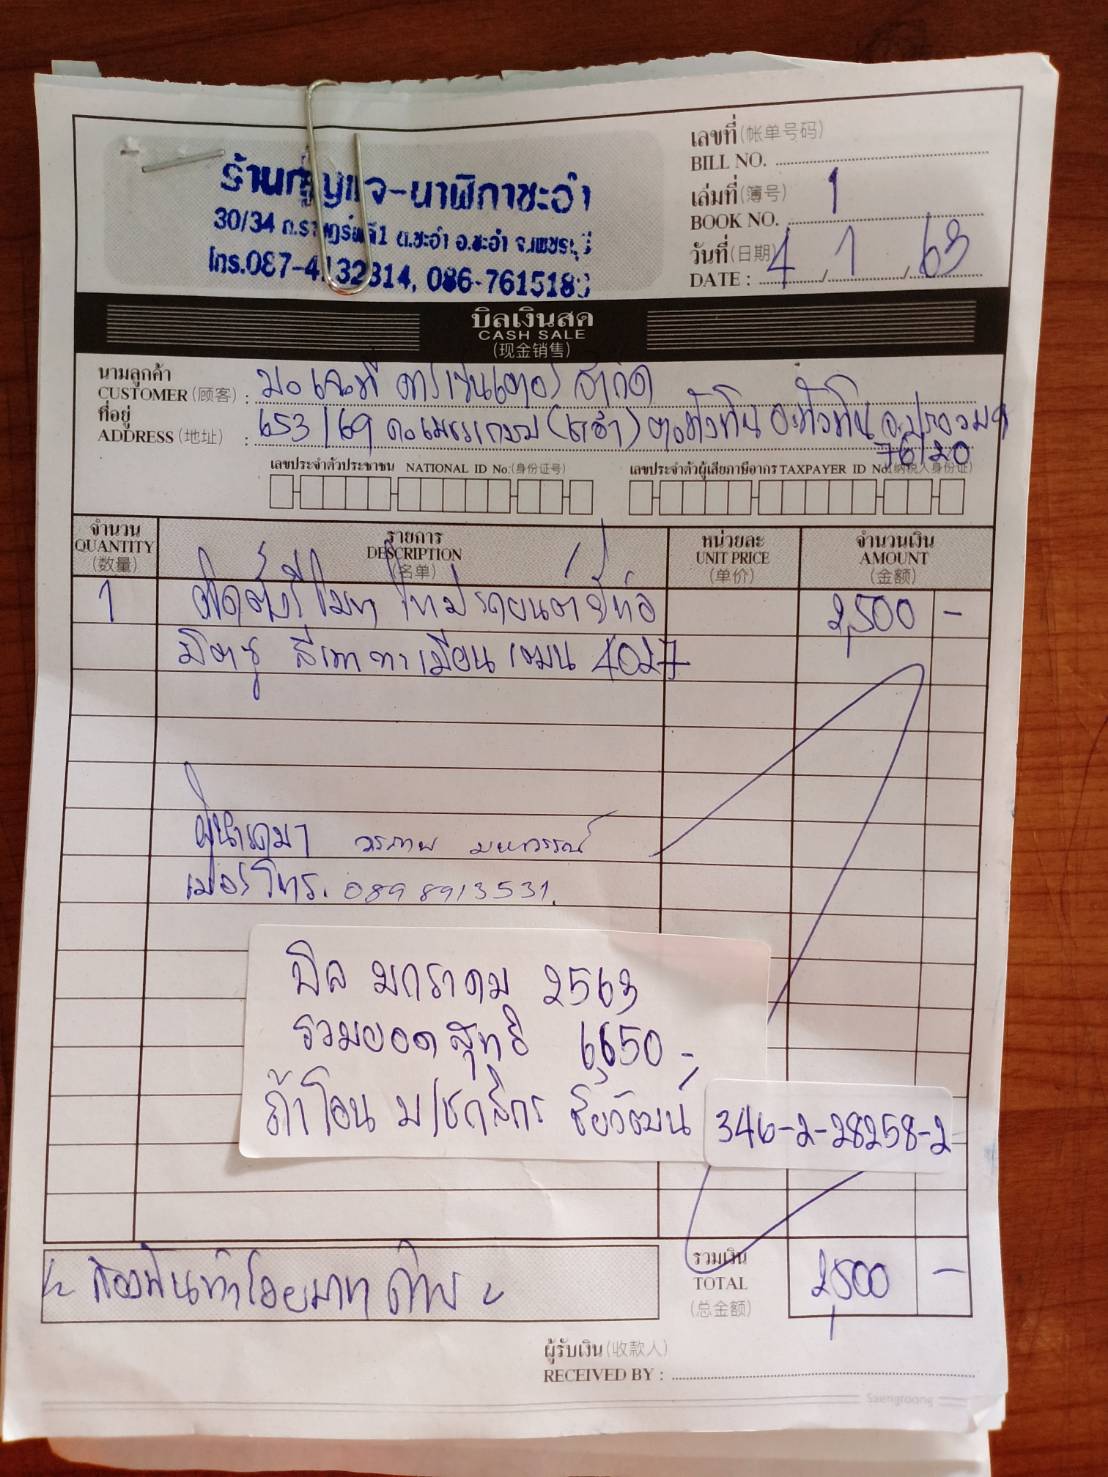 ร้านกุญแจ-นาฬิกาชะอำ
30/34 ถ.ราษฎร์พลี1 ต.ชะอำ อ.ชะอำ จ.เพชรบุรี
โทร.087-4132314, 086-761518
เลขที่ (帐单号码)
BILL NO.
เล่มที่ (簿号) 1
BOOK NO.
วันที่ (日期) 4 / 1 / 63
DATE :
บิลเงินสด
CASH SALE
(现金销售)
นามลูกค้า
CUSTOMER (顾客) : คาร์เซ็นเตอร์ จำกัด
ที่อยู่
ADDRESS (地址) : 653/69 ถ.เพชรเกษม
76120
เลขประจำตัวประชาชน NATIONAL ID No. (身份证号)
เลขประจำตัวผู้เสียภาษีอากร TAXPAYER ID No. (纳税人身份证)
จำนวน รายการ หน่วยละ จำนวนเงิน
QUANTITY DESCRIPTION UNIT PRICE AMOUNT
(数量) (名单) (单价) (金额)
1 ติดตั้งรีโมท ใหม่ รถยนต์ ยี่ห้อ 2,500 -
มิตซู สีเทา ทะเบียน 4027
ผู้นำรถมา วรภาพ
เบอร์โทร. 0898913531
บิล มกราคม 2563
รวมยอดสุทธิ 6,650 -
ถ้าโอน ชัยวัฒน์ 346-2-28258-2
สองพันห้าร้อยบาทถ้วน
รวมเงิน
TOTAL 2,500 -
(总金额)
ผู้รับเงิน (收款人)
RECEIVED BY :
Saengroong